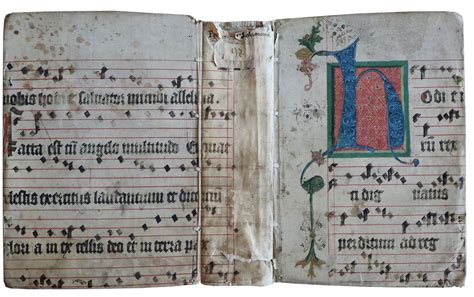 nobis hodie saluator mundi alleluia
Facta est cū angelo multitudo
lestis exercitus laudantium et dicenti
lori a in ex celsis deo et in terra pax
h Odi e
rex
ti dig natus
perditum ad reg